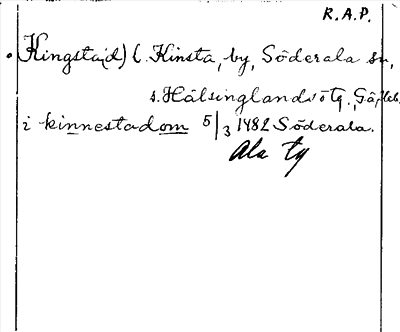 R.A.P.
Kingsta(d) (. Kinsta, by, Söderala sn,
s. Hälsinglands ö tg., Gävleb.
i kinnestadom 5/3 1482 Söderala.
Ala tg